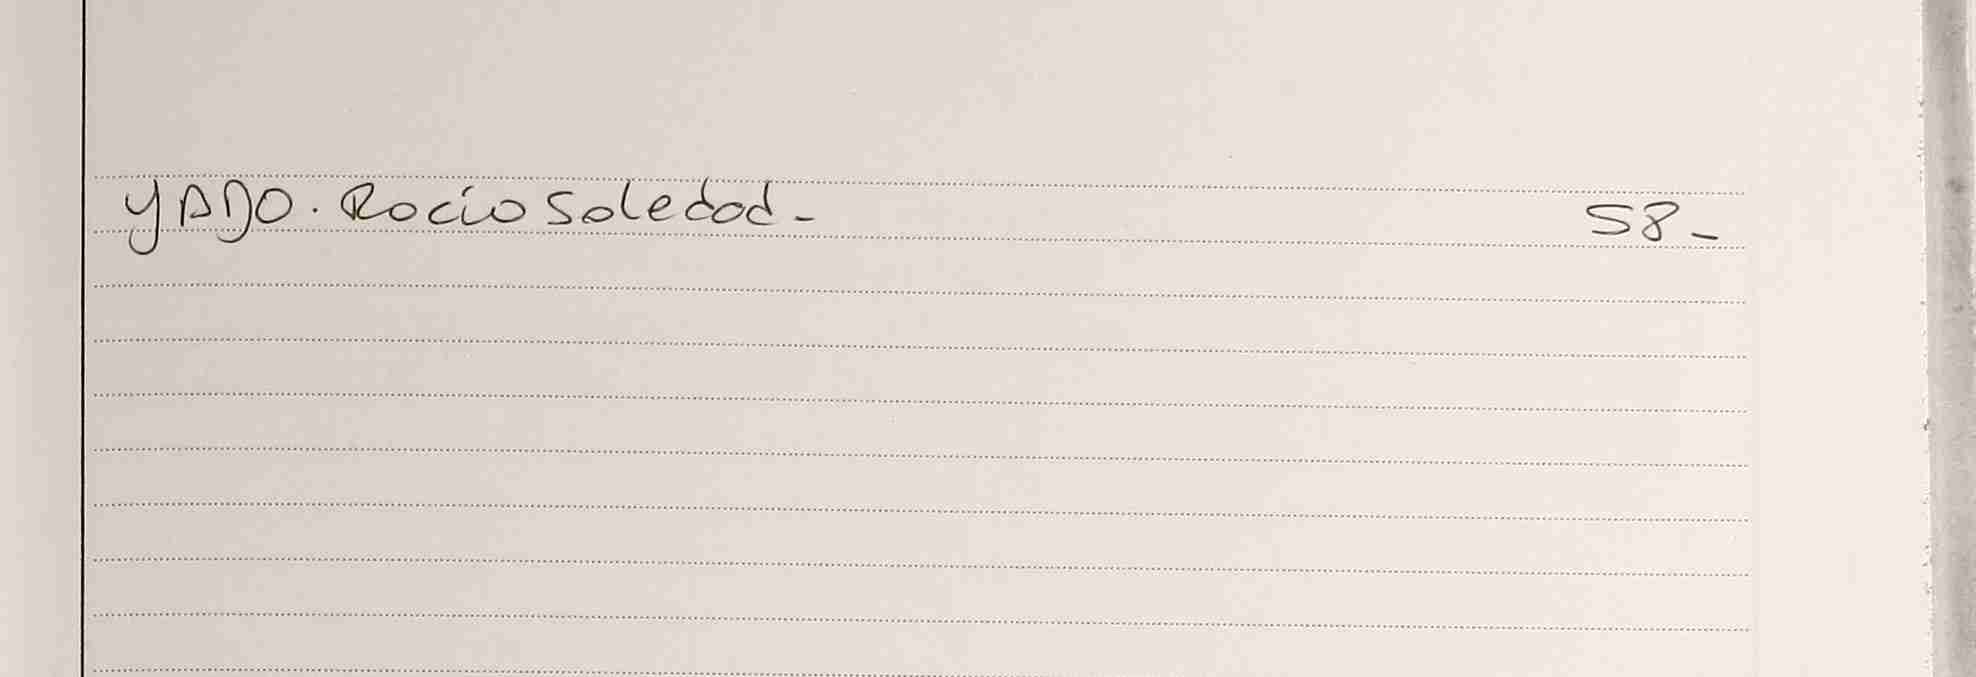 YADO. Rocío Soledad - 58 -